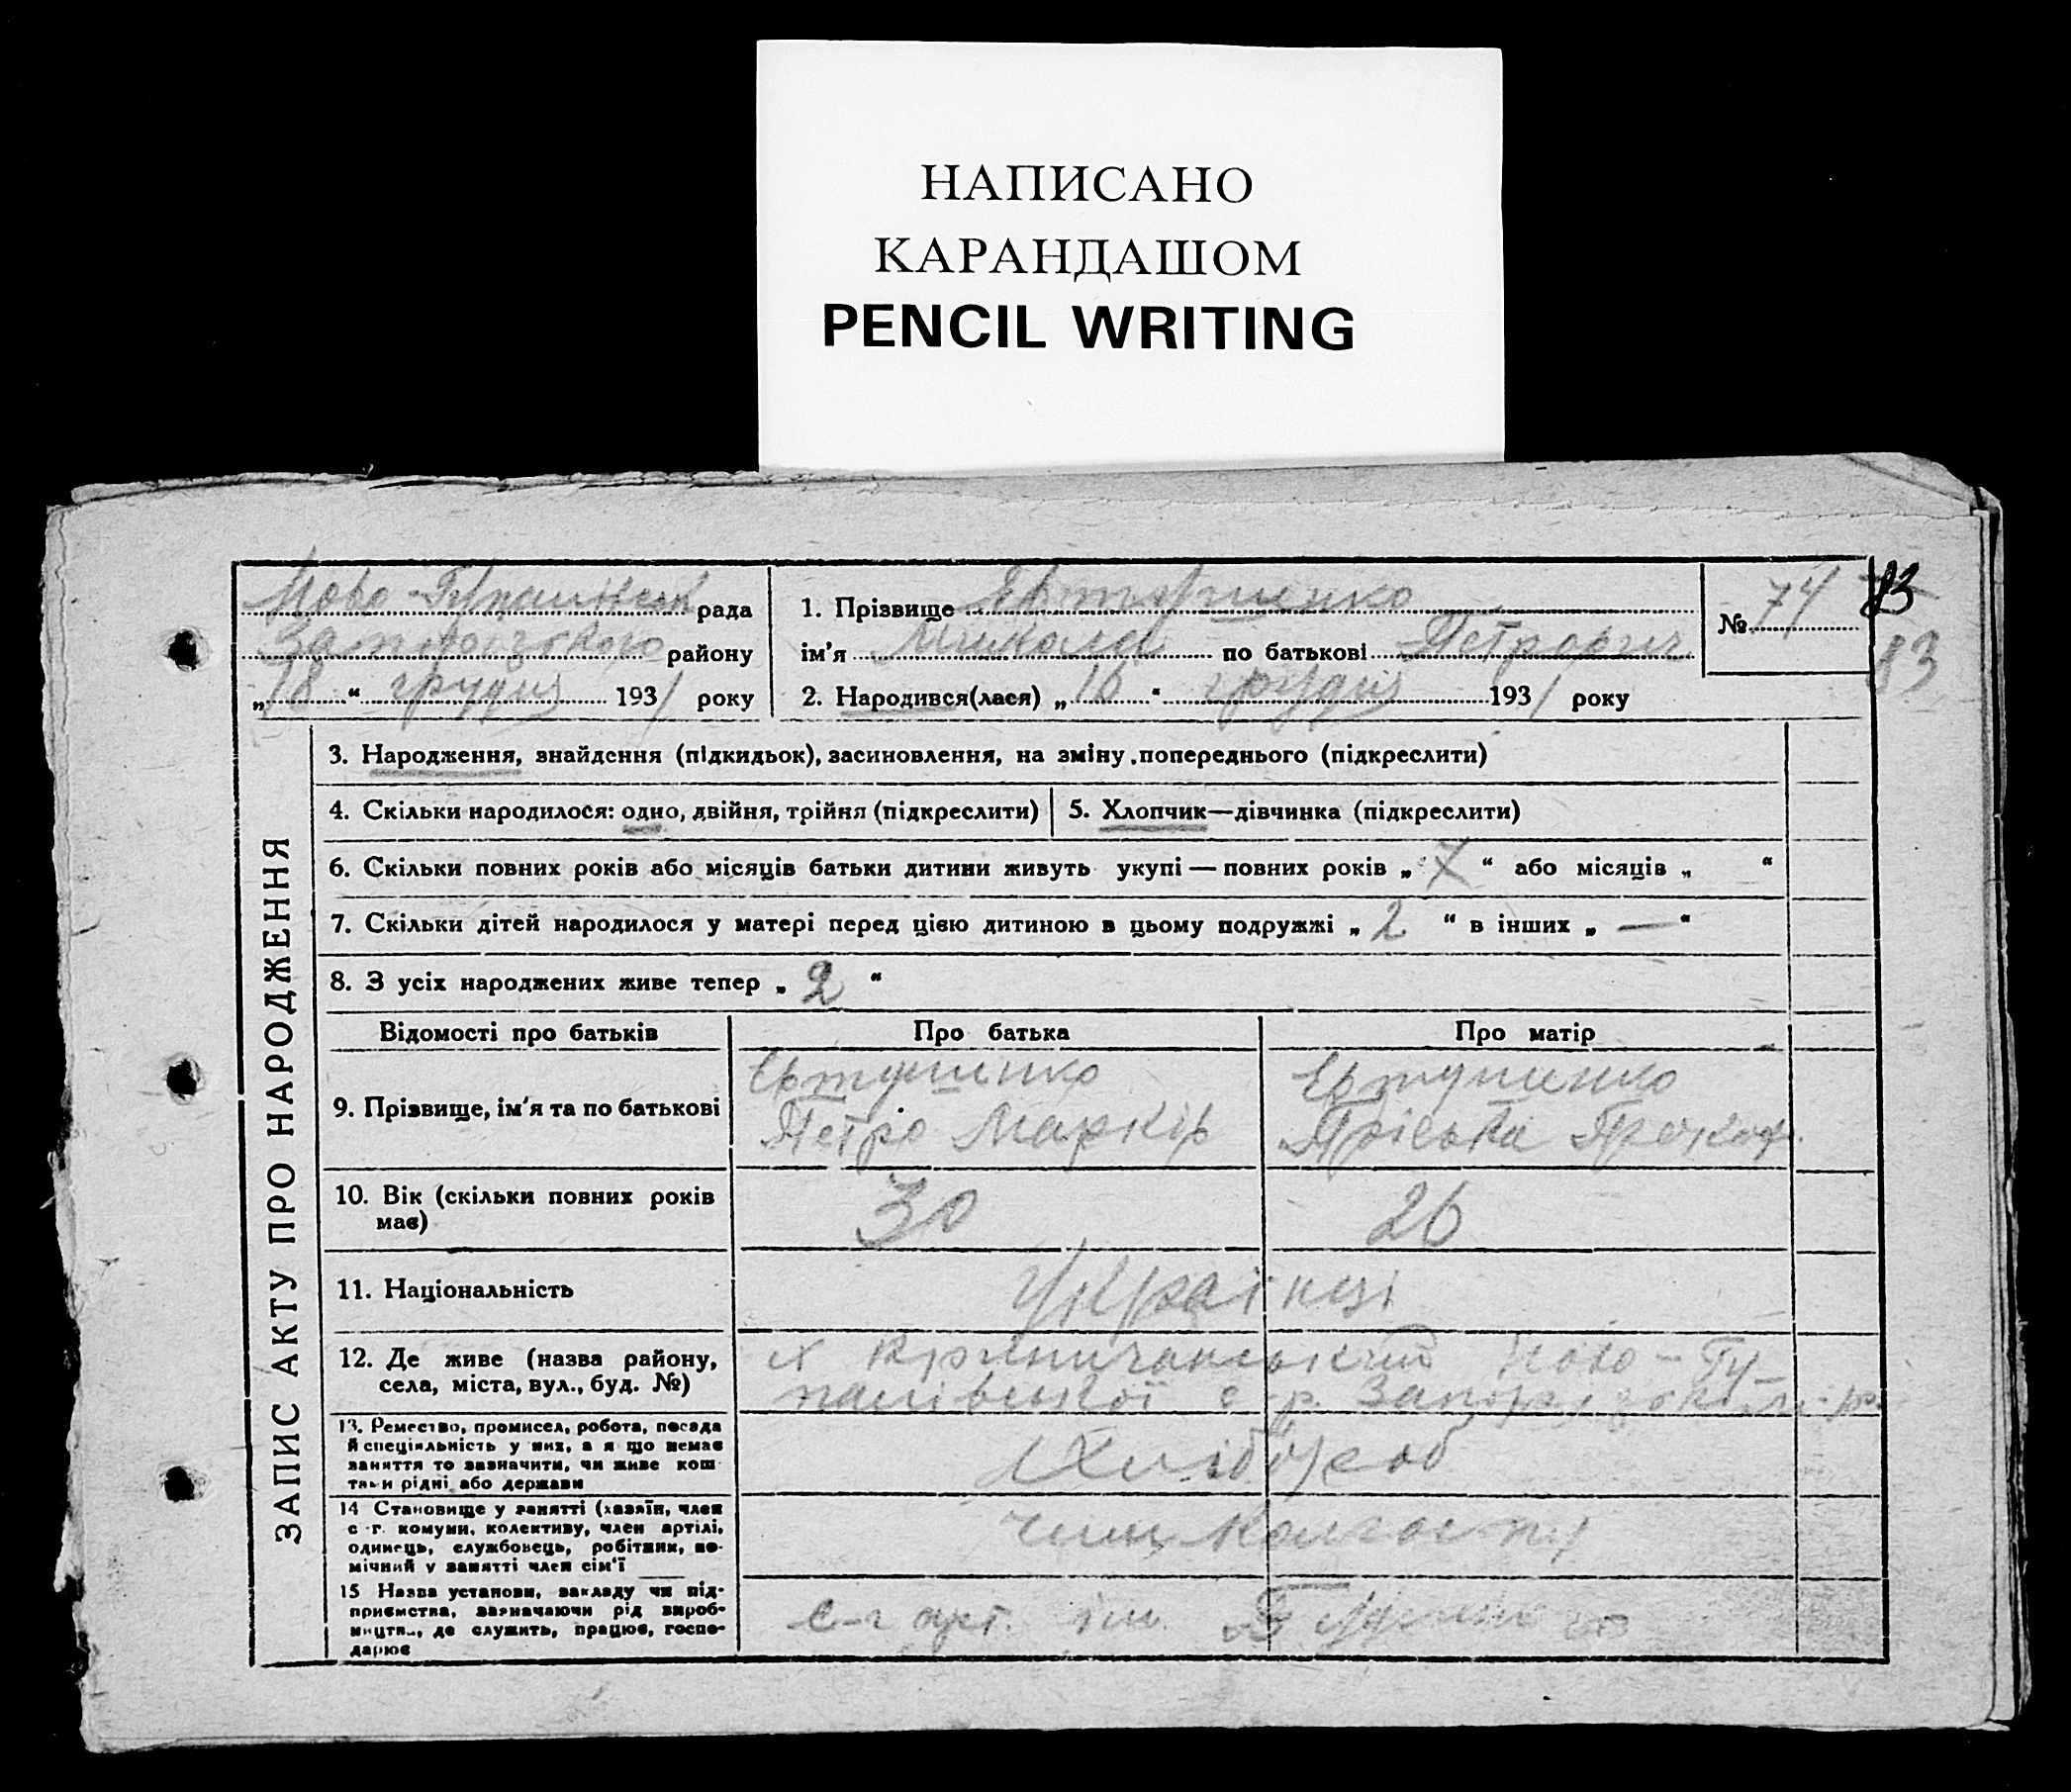 НАПИСАНО
КАРАНДАШОМ
PENCIL WRITING
Ново-Гупалівськ рада
Запорізького району
„18“ грудня 1931 року
1. Прізвище Євтушенко
ім'я Микола по батькові Петрович
2. Народився(лася) „16“ грудня 1931 року
№ 74
83
83
ЗАПИС АКТУ ПРО НАРОДЖЕННЯ
3. Народження, знайдення (підкидьок), засиновлення, на зміну попереднього (підкреслити)
4. Скільки народилося: одно, двійня, трійня (підкреслити)
5. Хлопчик—дівчинка (підкреслити)
6. Скільки повних років або місяців батьки дитини живуть укупі — повних років „7“ або місяців „ “
7. Скільки дітей народилося у матері перед цією дитиною в цьому подружжі „2“ в інших „—“
8. З усіх народжених живе тепер „2“
Відомості про батьків Про батька Про матір
9. Прізвище, ім'я та по батькові
Євтушенко
Петро Марків
Євтушенко
Пріська Прокоф.
10. Вік (скільки повних років
має)
30 26
11. Національність
Українці
12. Де живе (назва району,
села, міста, вул., буд. №)
х Ново-Гу
палівської с-р. Запорізьк р.
13. Ремество, промисел, робота, посада
й спеціяльність у них, а якщо немає
заняття то зазначити, чи живе кош
тами рідні або держави
Хлібороб
14 Становище у занятті (хазяїн, член
с-г. комуни, колективу, член артілі,
одинець, службовець, робітник, по-
мічний у занятті член сім'ї
член колгоспу
15 Назва установи, закладу чи під-
приємства, зазначаючи рід вироб-
ництва, де служить, працює, госпо-
дарює
с-г арт. ім.